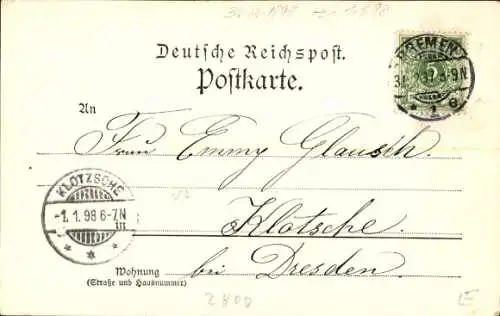 Deutsche Reichspost.
Postkarte.
BREMEN
5
8-9N
* 1 e
An
Frau Emmy Glausch.
KLOTZSCHE
-1. 1. 98 6-7N
* * *
Klotsche.
Wohnung
(Straße und Hausnummer)
bei Dresden.